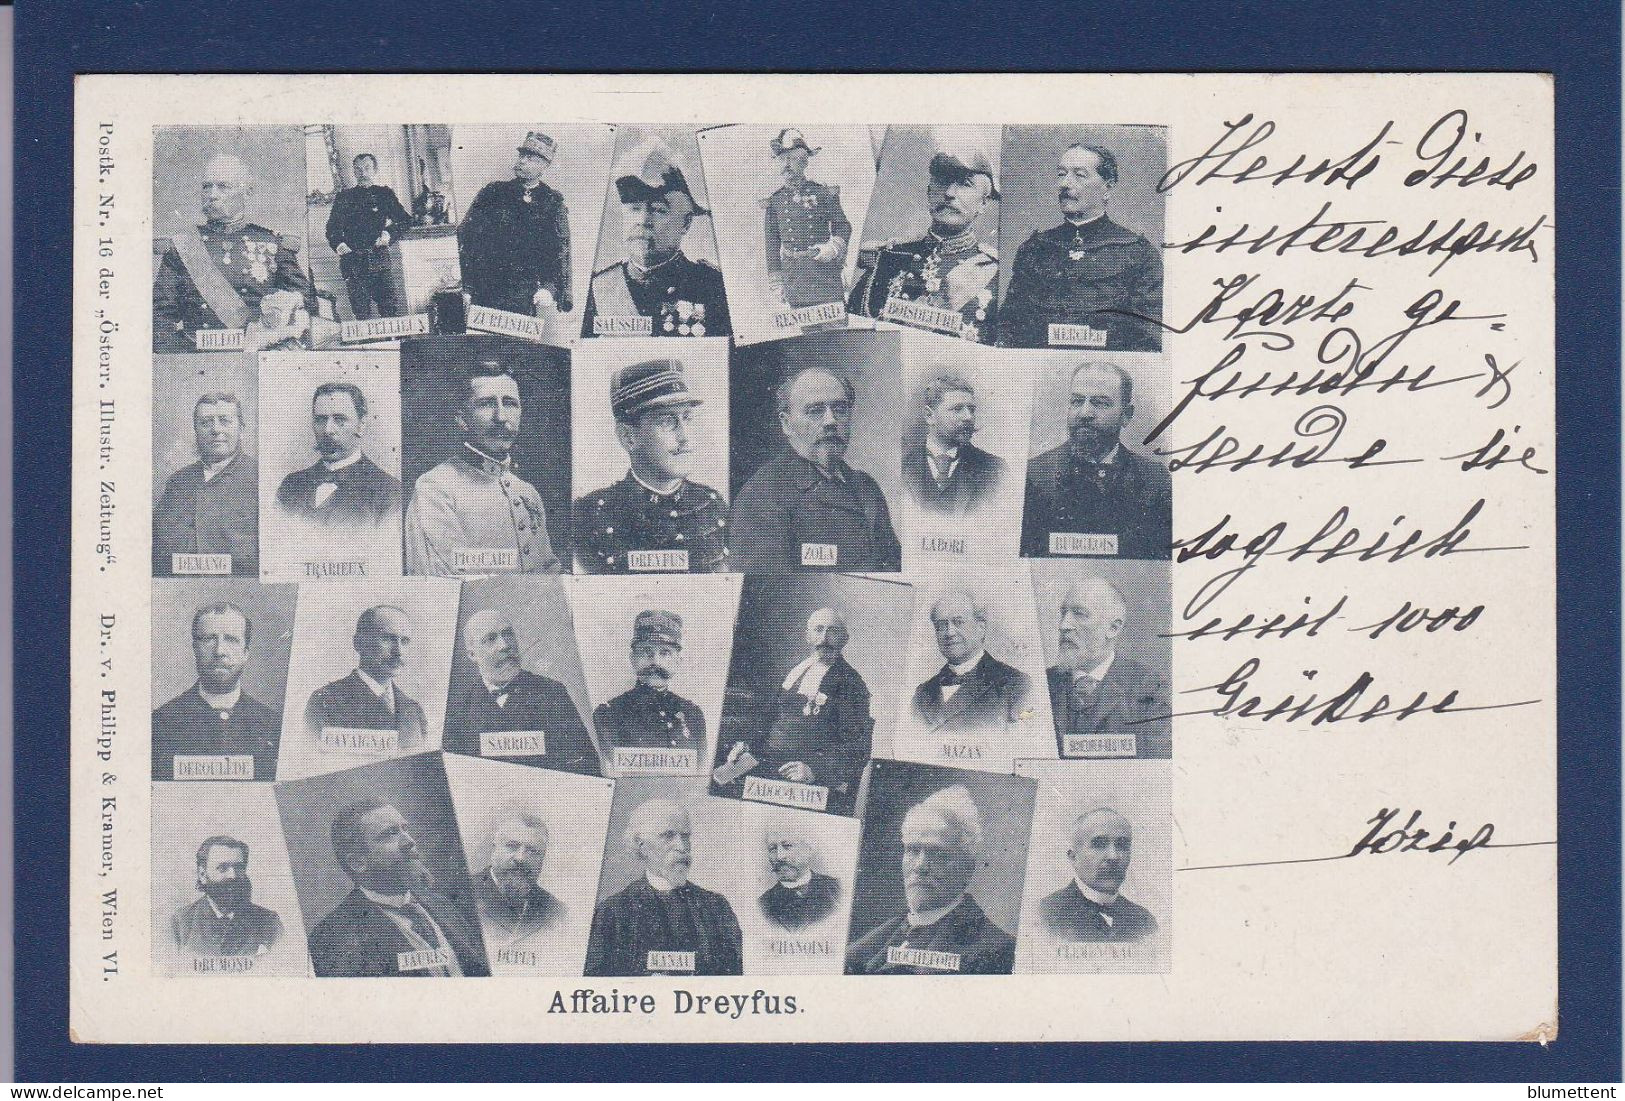 Postk. Nr. 16 der „Österr. Illustr. Zeitung“. Dr. v. Philipp & Kramer, Wien VI.
BILLOT
DE PELLIEUX
ZURLINDEN
SAUSSIER
RENOUARD
BOISDEFFRE
MERCIER
DEMANG
TRARIEUX
PICQUART
DREYFUS
ZOLA
LABORI
BURGEOIS
DEROULÈDE
CAVAIGNAC
SARRIEN
ESZTERHAZY
ZADOC-KAHN
MAZAN
DRUMOND
JAURÈS
DUPUY
MANAU
CHANOINE
ROCHEFORT
Affaire Dreyfus.
Heute diese
interessante
Karte ge-
funden &
sende sie
sogleich
mit 1000
Grüßen
blumettent